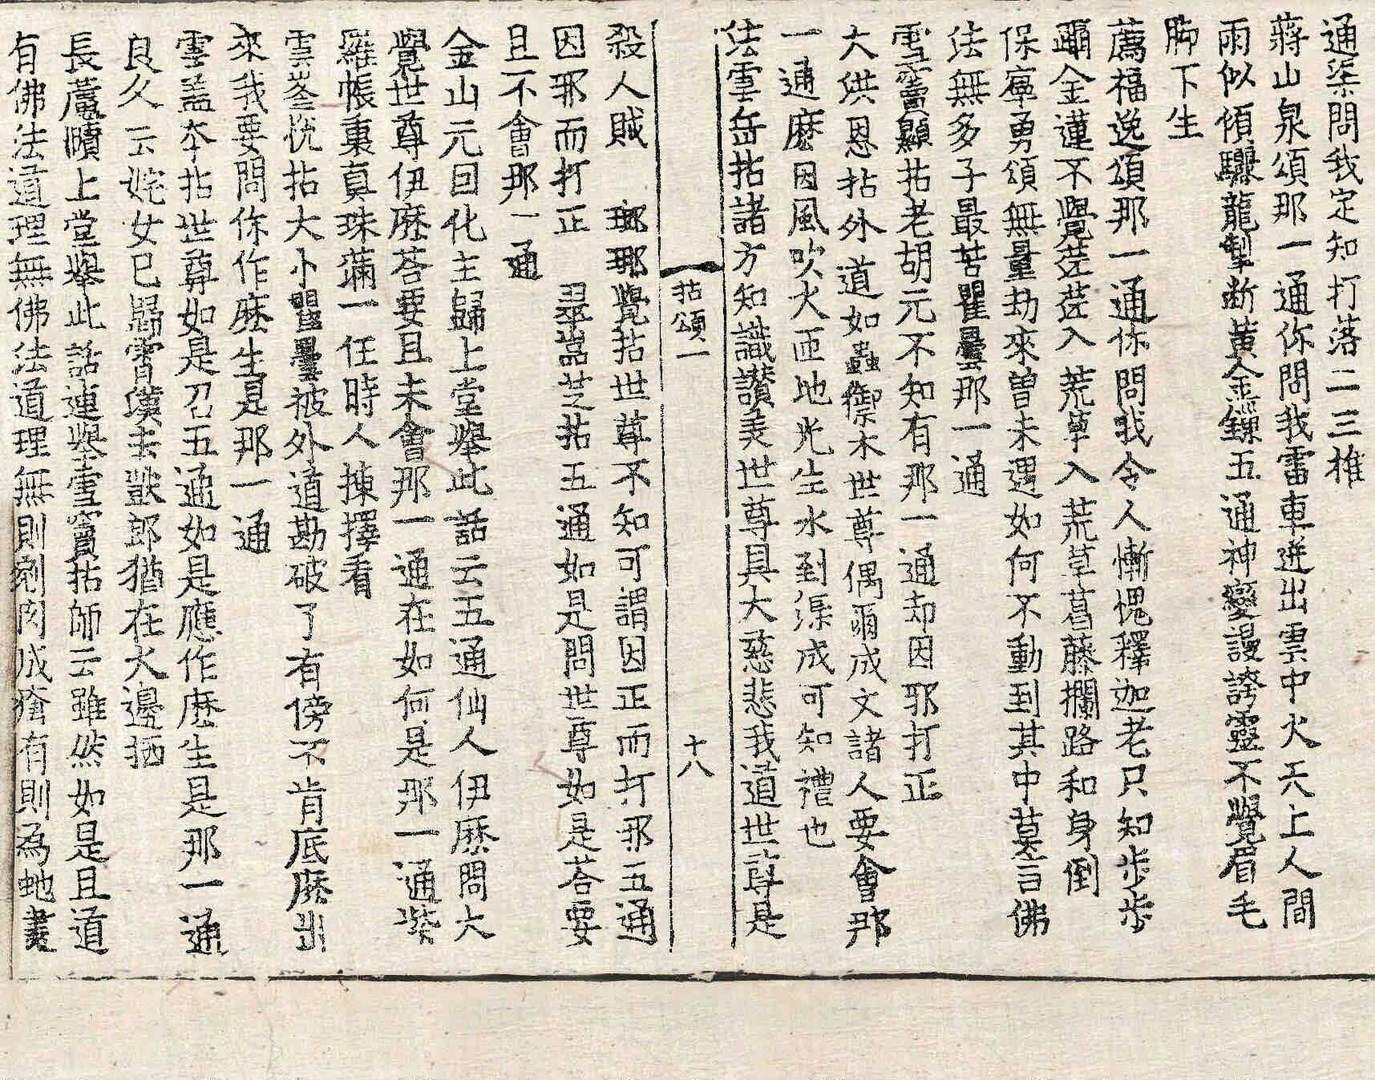 通渠問我定知打落二三椎
蔣山泉頌那一通你問我雷車迸出雲中火天上人間
雨似傾驪龍掣斷黃金鏁五通神變謾誇靈不覺眉毛
脚下生
薦福逸頌那一通你問我令人慚愧釋迦老只知步步
躡金蓮不覺茫茫入荒草入荒草葛藤攔路和身倒
保寧勇頌無量劫來曾未遇如何不動到其中莫言佛
法無多子最苦瞿曇那一通
雪竇顯拈老胡元不知有那一通却因邪打正
大洪恩拈外道如蟲禦木世尊偶爾成文諸人要會那
一通麽因風吹火匝地光生水到渠成可知禮也
法雲岳拈諸方知識讃美世尊具大慈悲我道世尊是
拈頌一
十八
殺人賊 瑯瑘覺拈世尊不知可謂因正而打邪五通
因邪而打正 翠嵓芝拈五通如是問世尊如是荅要
且不會那一通
金山元因化主歸上堂舉此話云五通仙人伊麽問大
覺世尊伊麽荅要且未會那一通在如何是那一通紫
羅帳裏真珠滿一任時人揀擇看
雲峯悅拈大小瞿曇被外道勘破了有傍不肯底麽出
來我要問你作麽生是那一通
雲盖本拈世尊如是召五通如是應作麽生是那一通
良久云姹女已歸霄漢去獃郎猶在火邊栖
長蘆賾上堂舉此話連舉雪竇拈師云雖然如是且道
有佛法道理無佛法道理無則剜肉成瘡有則為虵畫